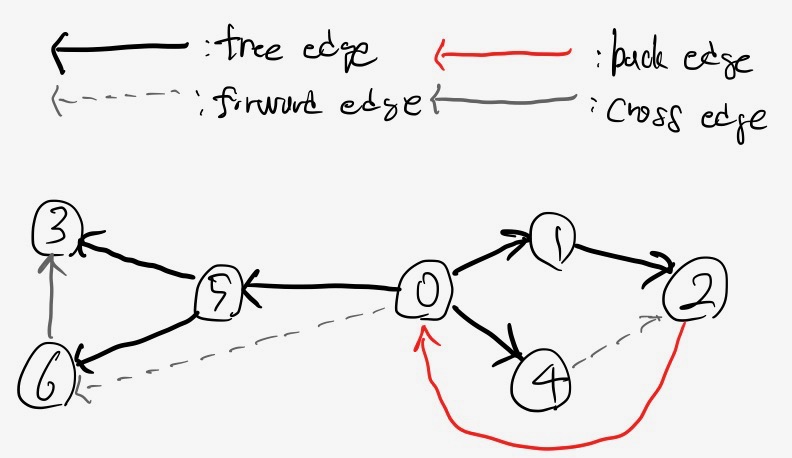 : tree edge
: back edge
: forward edge
: cross edge
3
1
5
0
2
6
4